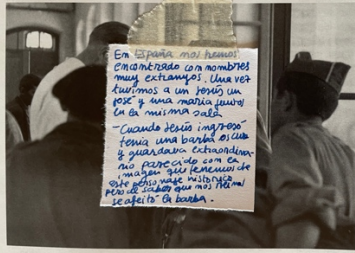 En España nos hemos
encontrado con nombres
muy extranyos. Una vez
tuvimos a un Jesús un
José y una maria juntos
en la misma sala
- Cuando Jesús ingresó
tenía una barba oscura
y guardava extraordina-
rio parecido con la
imagen que tenemos de
este personaje histórico
pero al saber que nos reímos
se afeitó la barba.